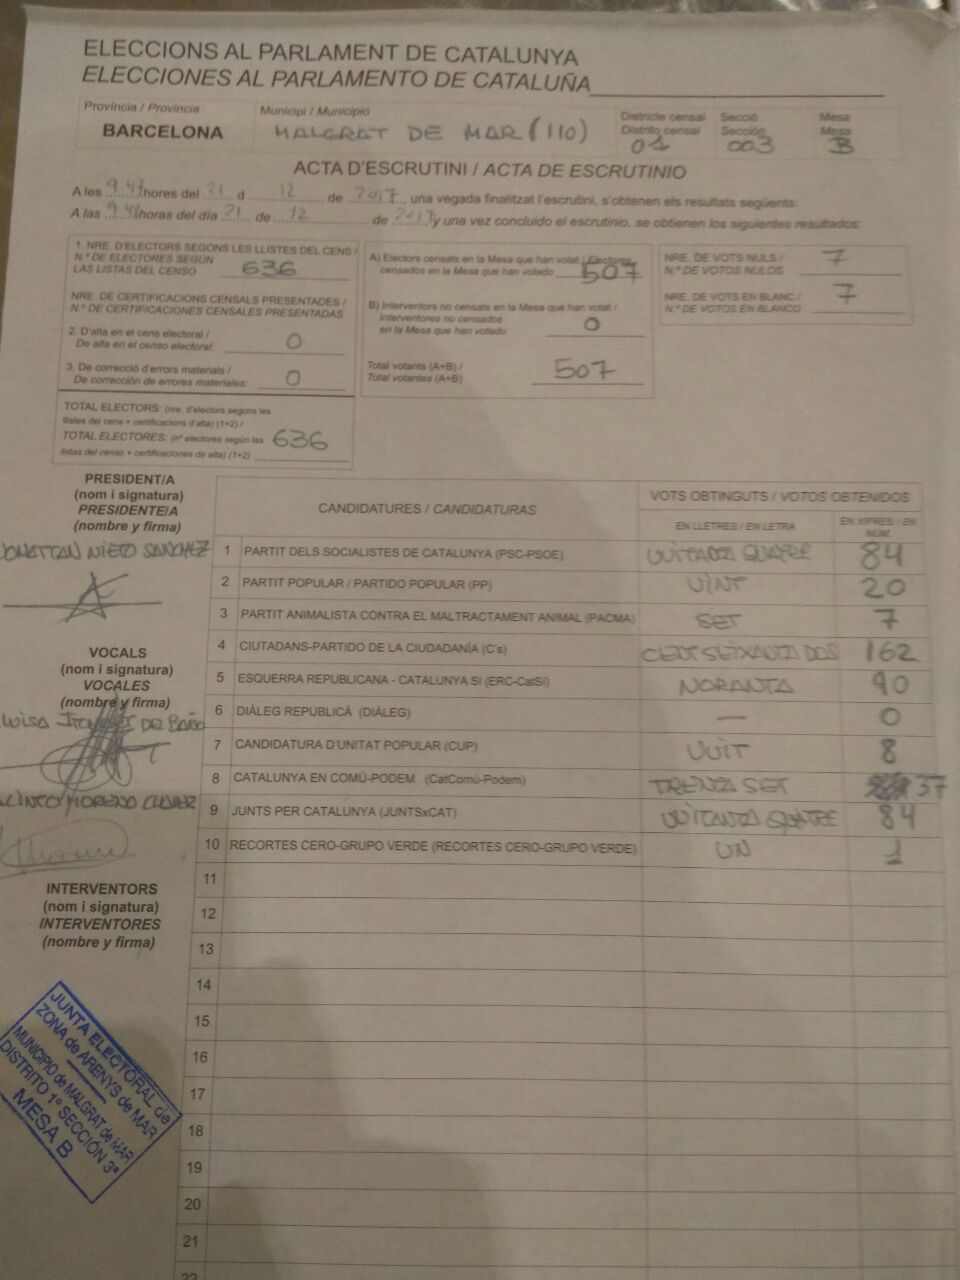 ELECCIONS AL PARLAMENT DE CATALUNYA
ELECCIONES AL PARLAMENTO DE CATALUÑA
Província / Provincia
BARCELONA
Municipi / Municipio
MALGRAT DE MAR (110)
Districte censal
Distrito censal
01
Secció
Sección
003
Mesa
Mesa
B
ACTA D'ESCRUTINI / ACTA DE ESCRUTINIO
A les 9.41 hores del 21 d 12 de 2017, una vegada finalitzat l'escrutini, s'obtenen els resultats següents:
A las 9.41 horas del día 21 de 12 de 2017, y una vez concluido el escrutinio, se obtienen los siguientes resultados:
1. NRE. D'ELECTORS SEGONS LES LLISTES DEL CENS /
N.º DE ELECTORES SEGÚN
LAS LISTAS DEL CENSO 636
NRE. DE CERTIFICACIONS CENSALS PRESENTADES /
N.º DE CERTIFICACIONES CENSALES PRESENTADAS
2. D'alta en el cens electoral /
De alta en el censo electoral: 0
3. De correcció d'errors materials /
De corrección de errores materiales: 0
TOTAL ELECTORS: (nre. d'electors segons les
llistes del cens + certificacions d'alta) (1+2) /
TOTAL ELECTORES: (nº electores según las 636
listas del censo + certificaciones de alta) (1+2)
A) Electors censats en la Mesa que han votat / Electores
censados en la Mesa que han votado 507
B) Interventors no censats en la Mesa que han votat /
Interventores no censados
en la Mesa que han votado 0
Total votants (A+B) /
Total votantes (A+B) 507
NRE. DE VOTS NULS / 7
N.º DE VOTOS NULOS
NRE. DE VOTS EN BLANC / 7
N.º DE VOTOS EN BLANCO
PRESIDENT/A
(nom i signatura)
PRESIDENTE/A
(nombre y firma)
JONATTAN NIETO SANCHEZ
VOCALS
(nom i signatura)
VOCALES
(nombre y firma)
DE
MORENO
INTERVENTORS
(nom i signatura)
INTERVENTORES
(nombre y firma)
JUNTA ELECTORAL de
ZONA de ARENYS de MAR
MUNICIPIO de MALGRAT de MAR
DISTRITO 1º SECCIÓN 3ª
MESA B
CANDIDATURES / CANDIDATURAS
VOTS OBTINGUTS / VOTOS OBTENIDOS
EN LLETRES / EN LETRA
EN XIFRES / EN NÚM.
1 PARTIT DELS SOCIALISTES DE CATALUNYA (PSC-PSOE) 84
2 PARTIT POPULAR / PARTIDO POPULAR (PP) VINT 20
3 PARTIT ANIMALISTA CONTRA EL MALTRACTAMENT ANIMAL (PACMA) SET 7
4 CIUTADANS-PARTIDO DE LA CIUDADANÍA (C's) CENT SEIXANTA DOS 162
5 ESQUERRA REPUBLICANA - CATALUNYA SÍ (ERC-CatSí) NORANTA 90
6 DIÀLEG REPUBLICÀ (DIÀLEG) — 0
7 CANDIDATURA D'UNITAT POPULAR (CUP) VUIT 8
8 CATALUNYA EN COMÚ-PODEM (CatComú-Podem) TRENTA SET 37
9 JUNTS PER CATALUNYA (JUNTSxCAT) VUITANTA QUATRE 84
10 RECORTES CERO-GRUPO VERDE (RECORTES CERO-GRUPO VERDE) UN 1
11
12
13
14
15
16
17
18
19
20
21
22